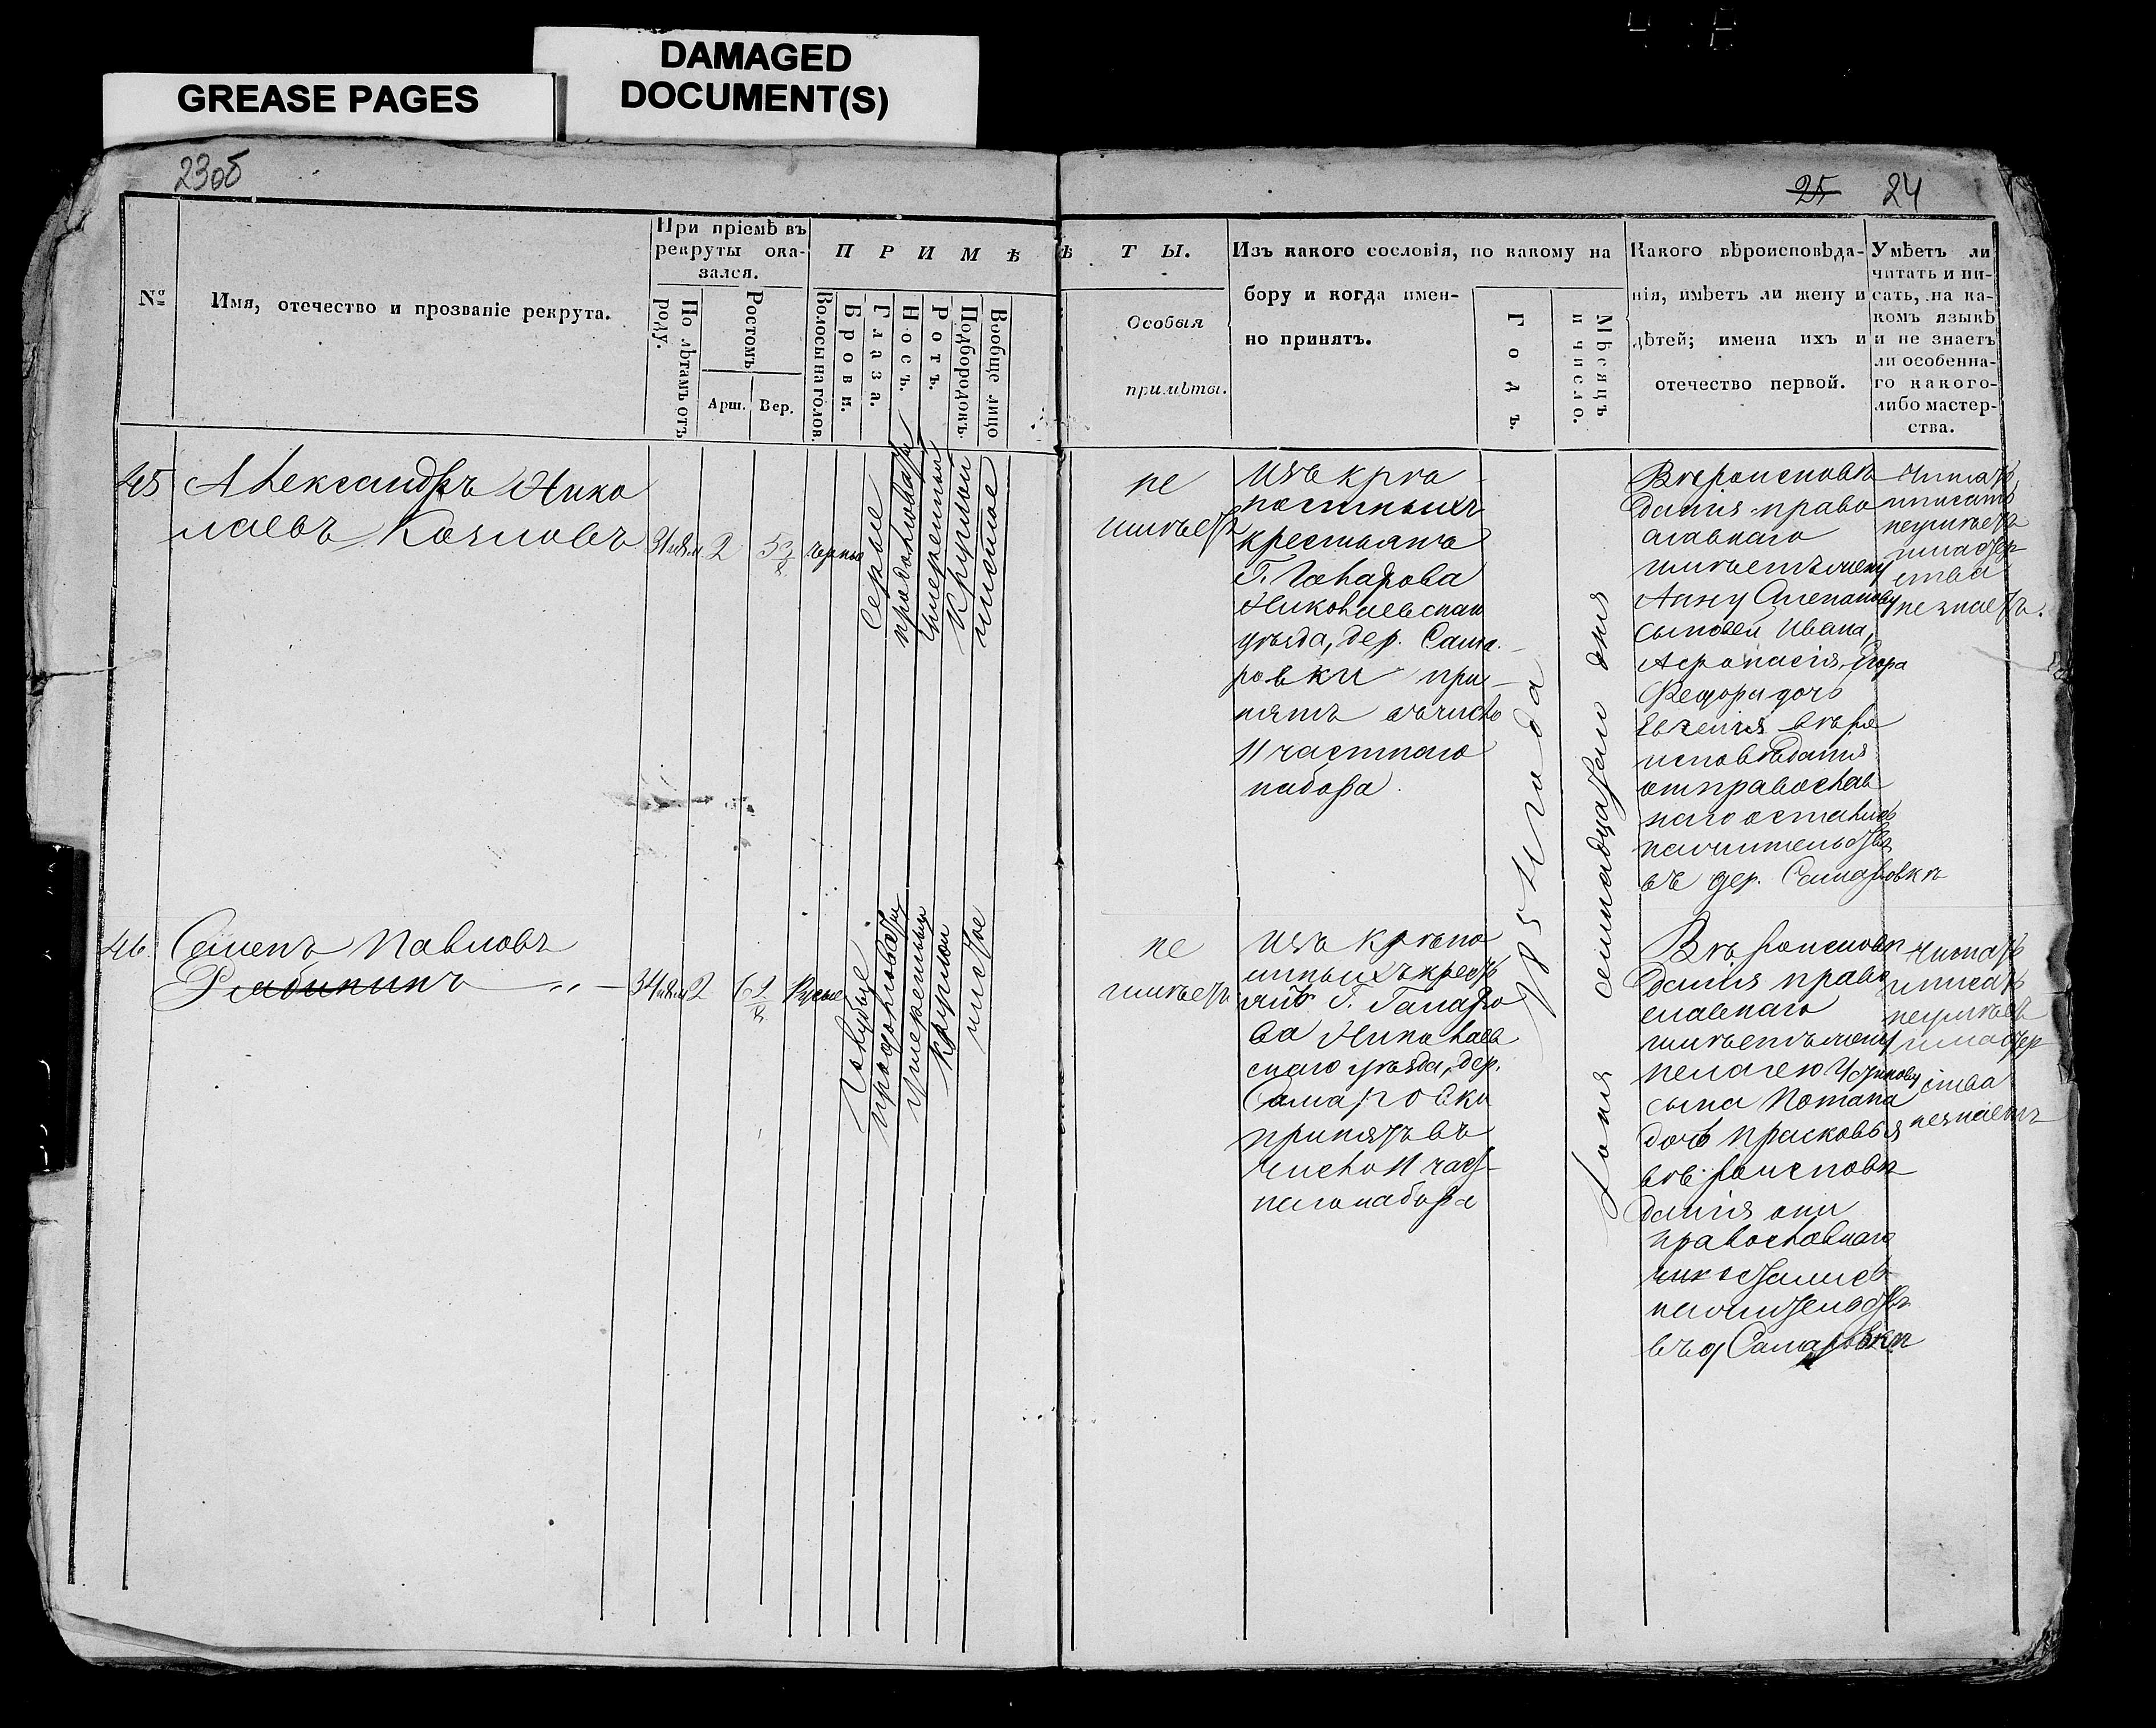 GREASE PAGES
DAMAGED
DOCUMENT(S)
23об
25 24
№
Имя, отечество и прозваніе рекрута.
При пріемѣ въ
рекруты ока-
зался.
По лѣтамъ отъ
роду.
Ростомъ
Арш.
Вер.
ПРИМѢ
Волосы на голов.
Брови.
Глаза.
Носъ.
Ротъ.
Подбородокъ.
Вообще лицо
Ѣ ТЫ.
Особыя
примѣты.
Изъ какого сословія, по какому на
бору и когда имен-
но принятъ.
Годъ.
Мѣсяцъ
и число.
Какого вѣроисповѣда-
нія, имѣетъ ли жену и
дѣтей; имена ихъ и
отечество первой.
Умѣетъ ли
читать и пи-
сать, на ка-
комъ языкѣ
и не знаетъ
ли особенна-
го какого-
либо мастер-
ства.
45 Александръ Нико
лаевъ Козловъ
2
черные
Серые
продолговатый
Умеренный
Круглый
чистое
не
имѣетъ
Изъ крѣ
постныхъ
крестьянъ
Николаевскаго
уѣзда, дер. Сама
ровки при
нятъ въ число
11 частнаго
набора.
1854 года
Іюня семнадцатаго дня
Вѣроисповѣ
данія право
славнаго
имѣетъ жену
Анну Степанову
сыновей Ивана,
Федора дочь
Евгенія вѣро
исповѣданія
православ
наго остались
на жительствѣ
въ дер. Самаровкѣ
Читать,
писать
неумѣетъ
мастер
ства
незнаетъ.
46 Семенъ Павловъ
Рябининъ
2
Русые
Голубые
продолговатый
Умеренный
Круглый
чистое
не
имѣетъ
Изъ крѣпо
стныхъ крестъ
янъ Г. Гамаро
ва Николаев
скаго уѣзда, дер.
Самаровки
принятъ въ
число 11 част
наго набора
Вѣроисповѣ
данія право
славнаго
имѣетъ жену
Пелагею
сына Потапа
дочь Прасковья
вѣроисповѣ
данія они
православнаго
остались
на жительствѣ
въ д Самаровкѣ
Читать
писать
неумѣетъ
мастер
ства
незнаетъ